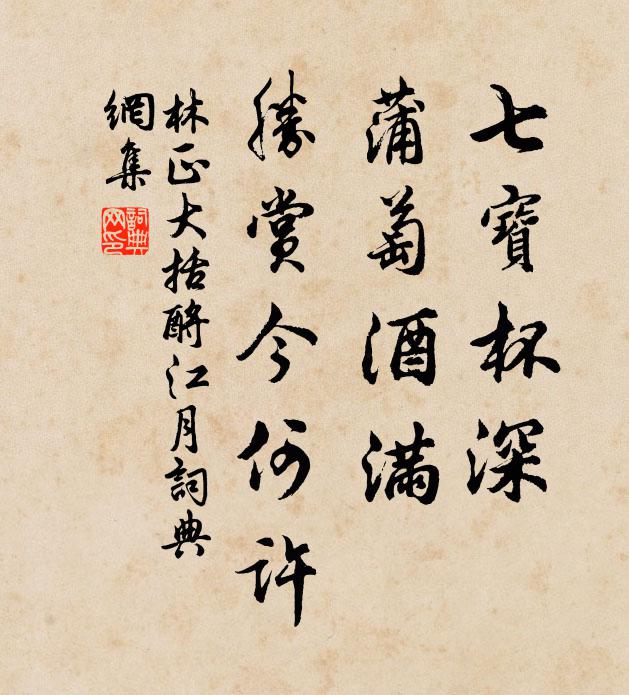 七寶杯深
蒲萄酒滿
勝賞今何許
林正大括酹江月詞典
網集
詞典
网印